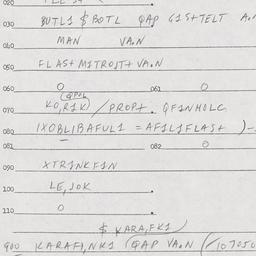 020
030 BUTL1 $ BOTL GAP G1S+TELT
040 MAN VA.N
050 FLAS+M1TROJT+VA.N
060 0 061 0
070 KO,R1K) / PROP+. QF1NHOLC
080 1XOBL1BAFUL1 = AF1L1FLAS+ )-
081 082 0
090 XTR1NKF1N
100 LE,JOK
110 0
$ KARA,FK1
900 KARAF1,NK1 (GAP VA.N (107050